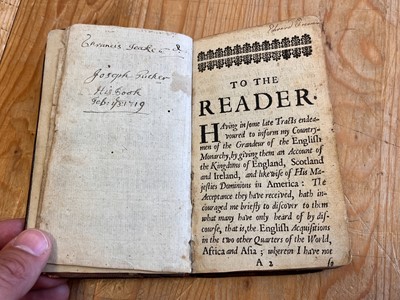 Joseph Tucker
His Book
TO THE
READER.
HAving in some late Tracts endea-
voured to inform my Country-
men of the Grandeur of the English
Monarchy, by giving them an Account of
the Kingdoms of England, Scotland
and Ireland, and likewise of His Ma-
jesties Dominions in America: The
Acceptance they have received, hath in-
couraged me briefly to discover to them
what many have only heard of by dis-
course, that is, the English Acquisitions
in the two other Quarters of the World,
Africa and Asia; wherein I have not
A 2